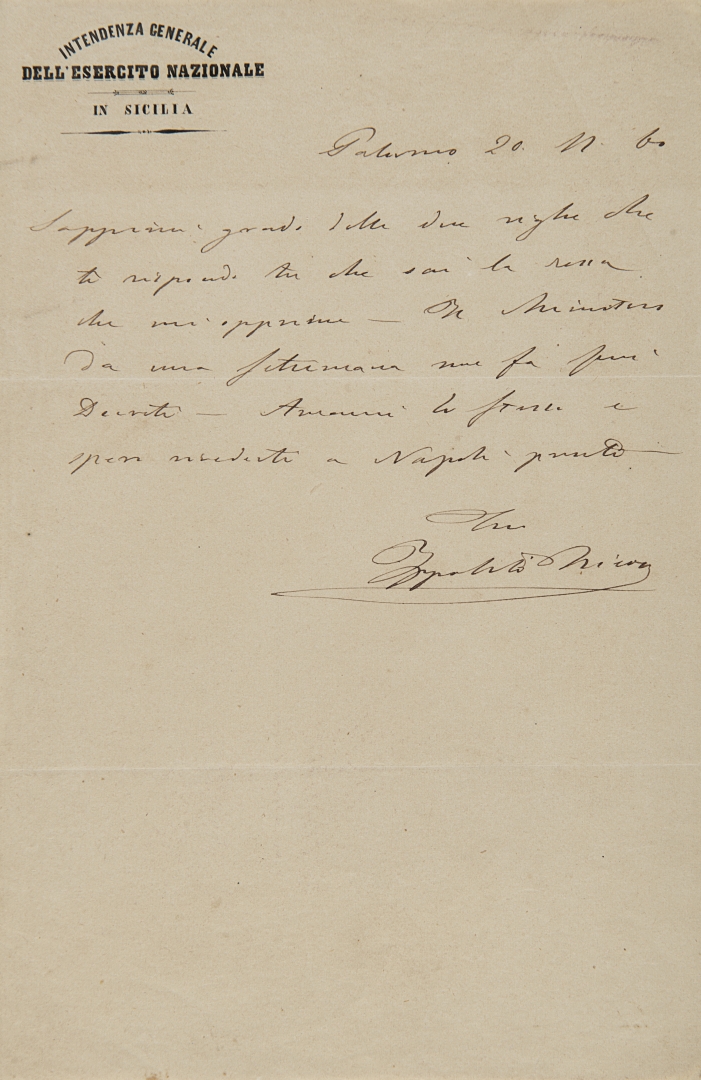 INTENDENZA GENERALE
DELL'ESERCITO NAZIONALE
IN SICILIA
Palermo 20. N. 60
Sappimi grado delle due righe che
ti rispondo tu che sai la ressa
che mi opprime — Il Ministero
da una settimana non fa più
Decreti — Amami lo stesso e
spero rivederti a Napoli presto —
Tuo
Ippolito Nievo